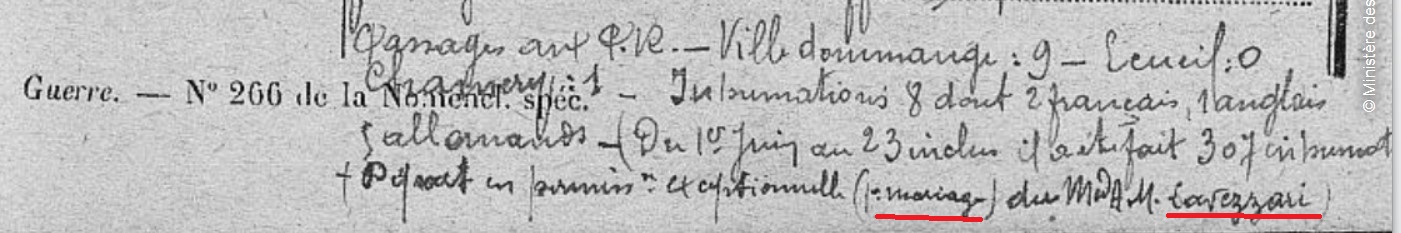 Passages aux P.R. — Villedommange : 9 — Ecueil : 0
Chamery : 1 — Inhumations 8 dont 2 français, 1 anglais
Guerre. — N° 266 de la Nomencl. spéc.
5 allemands — (Du 1er Juin au 23 inclus il a été fait 307 inhumat
+ Départ en permissn exceptionnelle (pr mariage) du Md A. M. Lavezzari)
© Ministère des